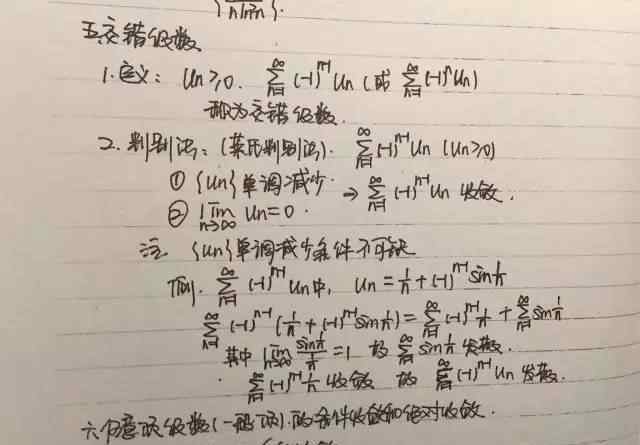 五.交错级数
1.定义: Un≥0. ∑_{n=1}^{∞} (-1)^{n-1} Un (或 ∑_{n=1}^{∞} (-1)^n Un)
称为交错级数.
2.判别法: (莱氏判别法). ∑_{n=1}^{∞} (-1)^{n-1} Un (Un≥0)
① {Un}单调减少.
② lim_{n→∞} Un=0. → ∑_{n=1}^{∞} (-1)^{n-1} Un 收敛.
注. {Un}单调减少条件不可缺
例. ∑_{n=1}^{∞} (-1)^{n-1} Un中, Un = 1/n + (-1)^{n-1} sin 1/n
∑_{n=1}^{∞} (-1)^{n-1} (1/n + (-1)^{n-1} sin 1/n) = ∑_{n=1}^{∞} (-1)^{n-1} 1/n + ∑_{n=1}^{∞} sin 1/n
其中 lim_{n→∞} (sin 1/n)/(1/n) = 1 故 ∑_{n=1}^{∞} sin 1/n 发散.
∑_{n=1}^{∞} (-1)^{n-1} 1/n 收敛 故 ∑_{n=1}^{∞} (-1)^{n-1} Un 发散.
六.任意项级数(一般项)的条件收敛和绝对收敛.